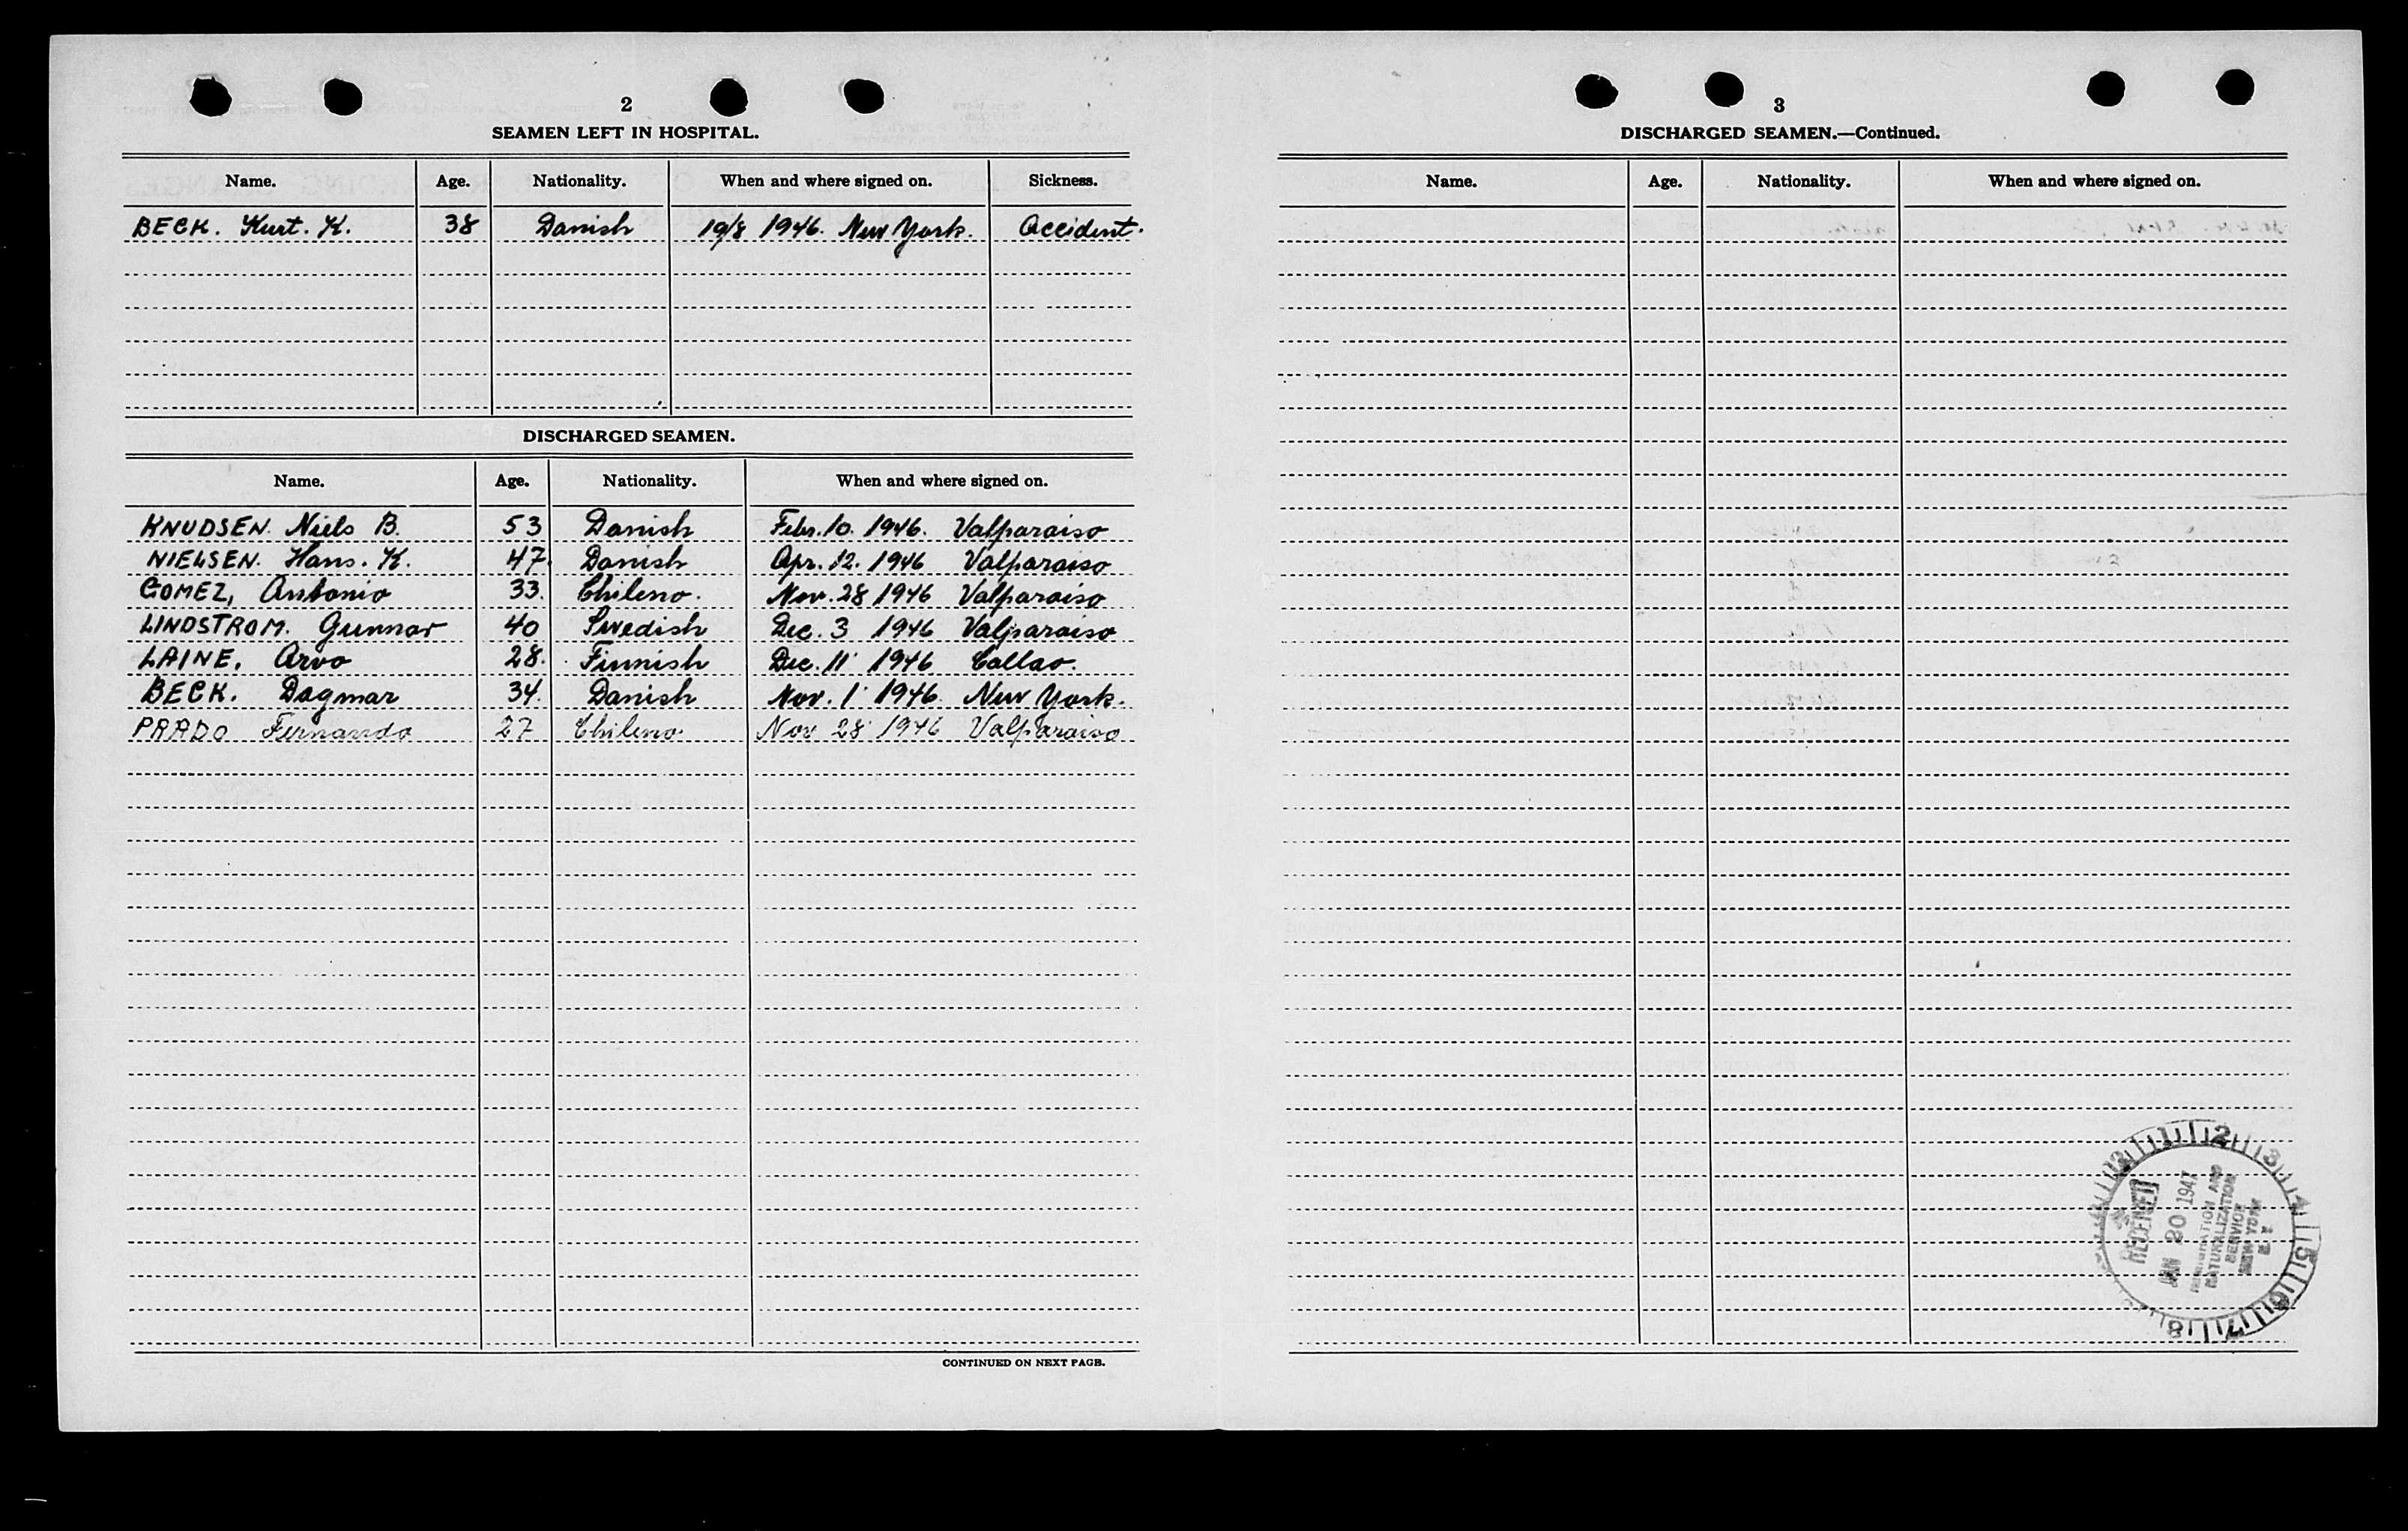 2
SEAMEN LEFT IN HOSPITAL.
Name. Age. Nationality. When and where signed on. Sickness.
BECK. Kurt. K. 38 Danish 19/8 1946. New York. Accident.
DISCHARGED SEAMEN.
Name. Age. Nationality. When and where signed on.
KNUDSEN. Niels B. 53 Danish Febr. 10. 1946. Valparaiso
NIELSEN. Hans. K. 47. Danish Apr. 12. 1946 Valparaiso
GOMEZ, Antonio 33. Chileno. Nov. 28 1946 Valparaiso
LINDSTROM. Gunnar 40 Swedish Dec. 3 1946 Valparaiso
LAINE, Arvo 28. Finnish Dec. 11 1946 Callao.
BECK. Dagmar 34. Danish Nov. 1 1946. New York.
PRADO Fernando 27 Chileno. Nov 28 1946 Valparaiso
CONTINUED ON NEXT PAGE.
3
DISCHARGED SEAMEN.—Continued.
Name. Age. Nationality. When and where signed on.
RECEIVED
JAN 20 1947
IMMIGRATION AND
NATURALIZATION
SERVICE
NEW YORK
N. Y.
12 1 2 3 4 5 6 7 8